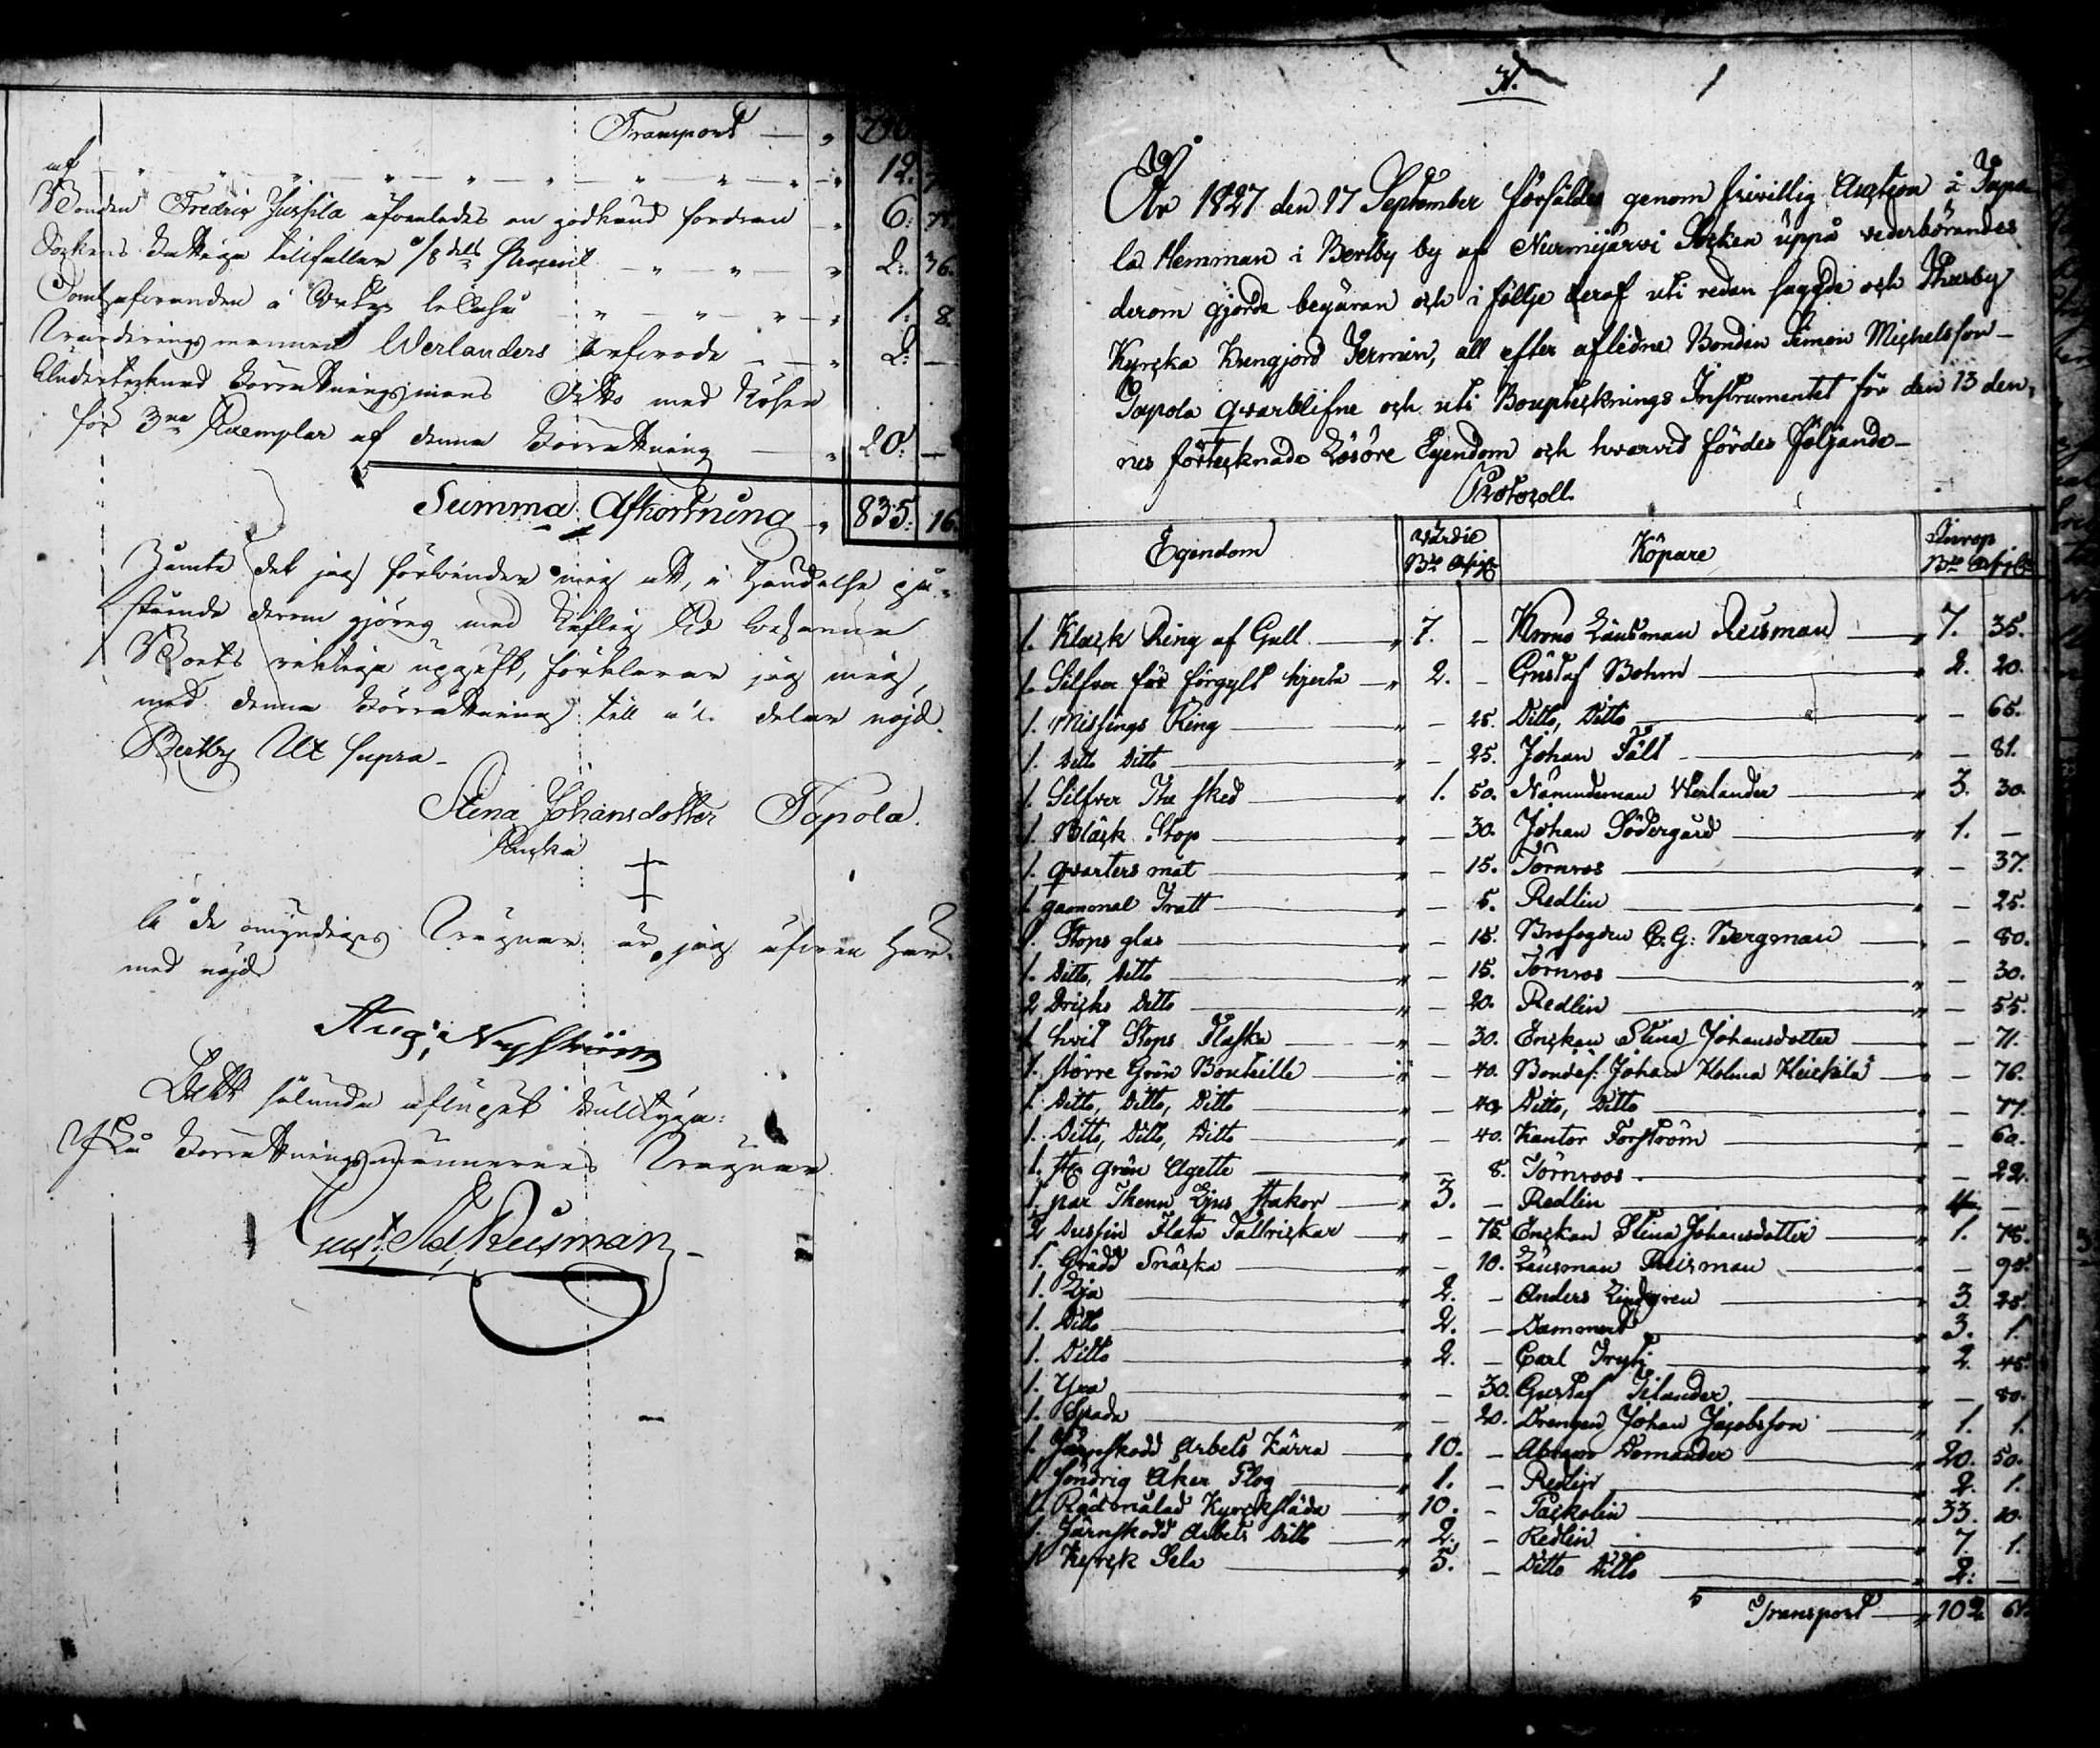 Transport — " 790
af — " — " — " — " — " 12.
Bonden Fredric Jussila afbetaldes en godkänd fordran " 6: 75.
Sockens Fattige tillfaller 1/8 dels Procent — " — " 2: 36.
" — " — " 1: 8.
Värderingsmannen Werlanders Arfvode — " 2: —
Undertecknad Förrättningsmans Ditto med Lösen
för 3ne Exemplar af denna Förrättning — " 20: —
Summa Afkortning " 835: 16.
Jämte det jag förbinder mig att, i händelse på-
stående derom göres, med Liflig Ed bestyrka
Boets riktiga uppgift, förklarar jag mig
med denna Förrättning till alla delar nöjd.
Bertby Ut supra.
Stina Johansdotter Tapola.
Enka
På de omyndiges Vägnar är jag äfven här-
med nöjd
Aug: Nyström
Detta sålunda aflupit betyga:
På Förrättningsmännernes Vägnar
Gust. Ad. Reisman
31.
År 1827 den 17 September försåldes genom frivillig Auction i Tapo-
la Hemman i Bertby by af Nurmijärvi Socken uppå vederbörandes
derom gjorde begäran och i följe deraf uti redan sagde och Thusby
Kyrcka Kungjord Termin, all efter aflidne Bonden Simon Michelsson
Tapola qvarblifne och uti Boupteknings Instrumentet för den 13 den-
nes förtecknade Lösöre Egendom och hvarvid fördes följande
Protocoll.
Egendom Värdie Köpare Inrop
Ro Assign. Ro Assign.
1. Klack Ring af Gull — " 7. — Krono Länsman Reisman — " 7. 35.
1. Silfver förgylt hjerta — " 2. — Gustaf Bohm — " 2. 20.
1. Missings Ring — " — 25. Ditto, Ditto — " — 65.
1. Ditto Ditto — " — 25. Johan Fält — " — 81.
1. Silfver The sked — " 1. 50. Nämndeman Werlander — " 3. 30.
1. Bläck Stop — " — 30. Johan Södergård — " 1. —
1. qvarters mat — " — 15. Törnros — " — 37.
1 gammal Tratt — " — 5. Redlin — " — 25.
1. Stops glas — " — 15. Brofogden C. G: Bergman — " — 80.
1. Ditto, Ditto — " — 15. Törnros — " — 30.
2 Dricks Ditto — " — 20. Redlin — " — 55.
1 hvit Stops Flaska — " — 30. Enckan Stina Johansdotter — " — 71.
1. större Grön Bouteille — " — 40. Bondes: Johan Holma Heickilä — " — 76.
1. Ditto, Ditto, Ditto — " — 40. Ditto, Ditto — " — 77.
1. Ditto, Ditto, Ditto — " — 40. Kantor Forström — " — 60.
1. st. grön Ågette — " — 8. Törnroos — " — 22.
1. par Thenn Ljus stakor — " 3. — Redlin — " 4. —
2 Dussin Flata Tallrickar — " — 75 Enckan Stina Johansdotter — " 1. 78.
1. Grädd Snäcka — " — 10. Länsman Reisman — " — 90.
1. Lja — " 2. — Anders Lindgren — " 3. 25.
1. Ditto — " 2. — Dammert — " 3. 1.
1. Ditto — " 2. — Carl — " 2. 45.
1. Yxa — " — 30. Gustaf — " — 80.
1. Spade — " — 20. Drengen Johan Jacobsson — " 1. 1.
1. Järnskodd Arbets Kärra — " 10. — Domander — " 20. 50.
1. Söndrig Åker Plog — " 1. — Redlin — " 2. 1.
1. Röd målad Kyrckslàda — " 10. — Packolin — " 33. 10.
1. Järnskodd Arbets Ditto — " 2. — Redlin — " 7. 1.
1. Kyrck Sela — " 5. — Ditto Ditto — " 2: —
Transport — " 102 61.